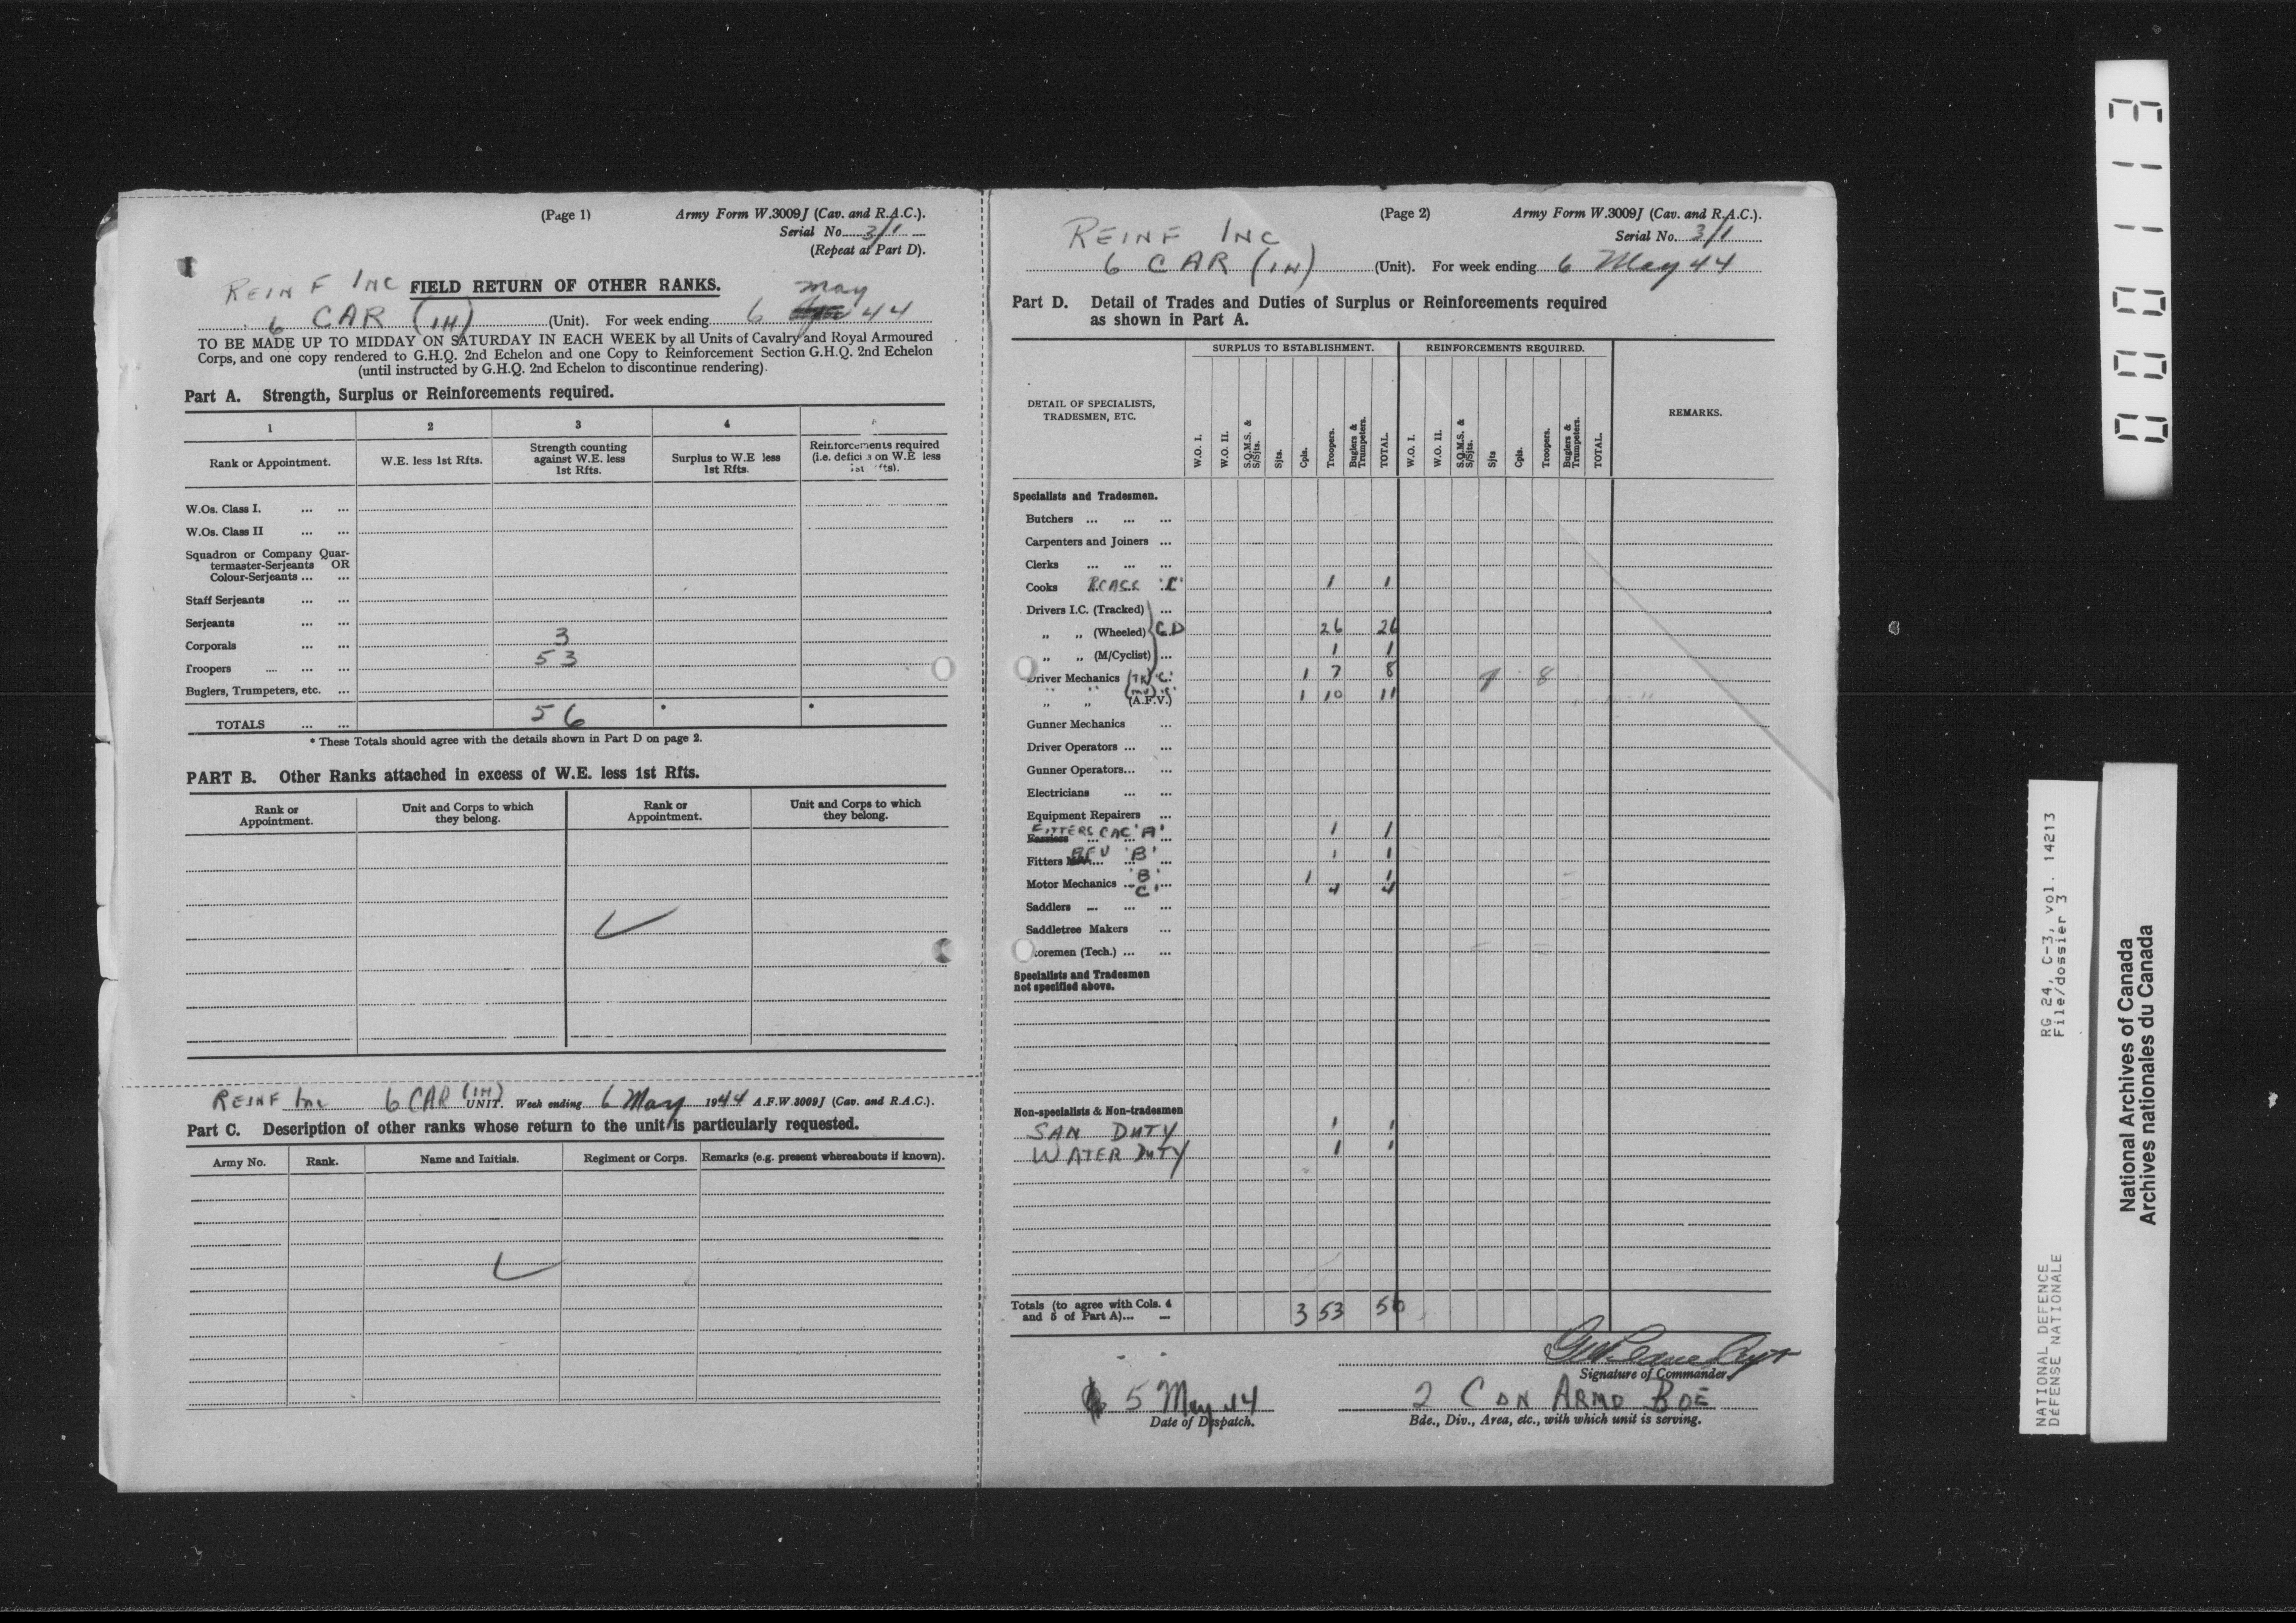 (Page 1)
Army Form W.3009J (Cav. and R.A.C.).
Serial No. 3/1
(Repeat at Part D).
REINF INC
FIELD RETURN OF OTHER RANKS.
6 CAR (1H) (Unit). For week ending 6 May 44
TO BE MADE UP TO MIDDAY ON SATURDAY IN EACH WEEK by all Units of Cavalry and Royal Armoured
Corps, and one copy rendered to G.H.Q. 2nd Echelon and one Copy to Reinforcement Section G.H.Q. 2nd Echelon
(until instructed by G.H.Q. 2nd Echelon to discontinue rendering).
Part A. Strength, Surplus or Reinforcements required.
1 2 3 4
Rank or Appointment.
W.E. less 1st Rfts.
Strength counting
against W.E. less
1st Rfts.
Surplus to W.E less
1st Rfts.
Reinforcements required
(i.e. defici s on W.E less
1st Rfts).
W.Os. Class I. ... ...
W.Os. Class II ... ...
Squadron or Company Quar-
termaster-Serjeants OR
Colour-Serjeants ... ...
Staff Serjeants ... ...
Serjeants ... ...
Corporals ... ... 3
Troopers ... ... ... 53
Buglers, Trumpeters, etc. ...
TOTALS ... ... 56 * *
* These Totals should agree with the details shown in Part D on page 2.
PART B. Other Ranks attached in excess of W.E. less 1st Rfts.
Rank or
Appointment.
Unit and Corps to which
they belong.
Rank or
Appointment.
Unit and Corps to which
they belong.
REINF Inc 6 CAR (1H) UNIT. Week ending 6 May 1944 A.F.W.3009J (Cav. and R.A.C.).
Part C. Description of other ranks whose return to the unit is particularly requested.
Army No. Rank. Name and Initials. Regiment or Corps. Remarks (e.g. present whereabouts if known).
(Page 2)
Army Form W.3009J (Cav. and R.A.C.).
Serial No. 3/1
REINF INC
6 CAR (1H) (Unit). For week ending 6 May 44
Part D. Detail of Trades and Duties of Surplus or Reinforcements required
as shown in Part A.
SURPLUS TO ESTABLISHMENT. REINFORCEMENTS REQUIRED.
DETAIL OF SPECIALISTS,
TRADESMEN, ETC.
W.O. I.
W.O. II.
S.Q.M.S. &
S/Sjts.
Sjts.
Cpls.
Troopers.
Buglers &
Trumpeters.
TOTAL.
W.O. I.
W.O. II.
S.Q.M.S. &
S/Sjts.
Sjts
Cpls.
Troopers.
Buglers &
Trumpeters.
TOTAL.
REMARKS.
Specialists and Tradesmen.
Butchers ... ... ...
Carpenters and Joiners ...
Clerks ... ... ...
Cooks RCASC 'C' 1 1
Drivers I.C. (Tracked) ...
„ „ (Wheeled) C.D 26 26
„ „ (M/Cyclist) ... 1 1
Driver Mechanics (TK) 'C' 1 7 8
„ „ (MV) 'C' (A.F.V.) 1 10 11
Gunner Mechanics ...
Driver Operators ... ...
Gunner Operators... ...
Electricians ... ...
Equipment Repairers ...
FITTERS CAC 'A' 1 1
Fitters AFV 'B' 1 1
Motor Mechanics ... 'B' 1 1
'C' 4 4
Saddlers ... ... ...
Saddletree Makers ...
oremen (Tech.) ... ...
Specialists and Tradesmen
not specified above.
Non-specialists & Non-tradesmen
SAN DUTY 1 1
WATER DUTY 1 1
Totals (to agree with Cols. 4
and 5 of Part A)... ... 3 53 56
Signature of Commander.
5 May 44
Date of Dispatch.
2 CDN ARMD BDE
Bde., Div., Area, etc., with which unit is serving.
0000113
RG 24, C-3, vol. 14213
File/dossier 3
NATIONAL DEFENCE
DÉFENSE NATIONALE
National Archives of Canada
Archives nationales du Canada